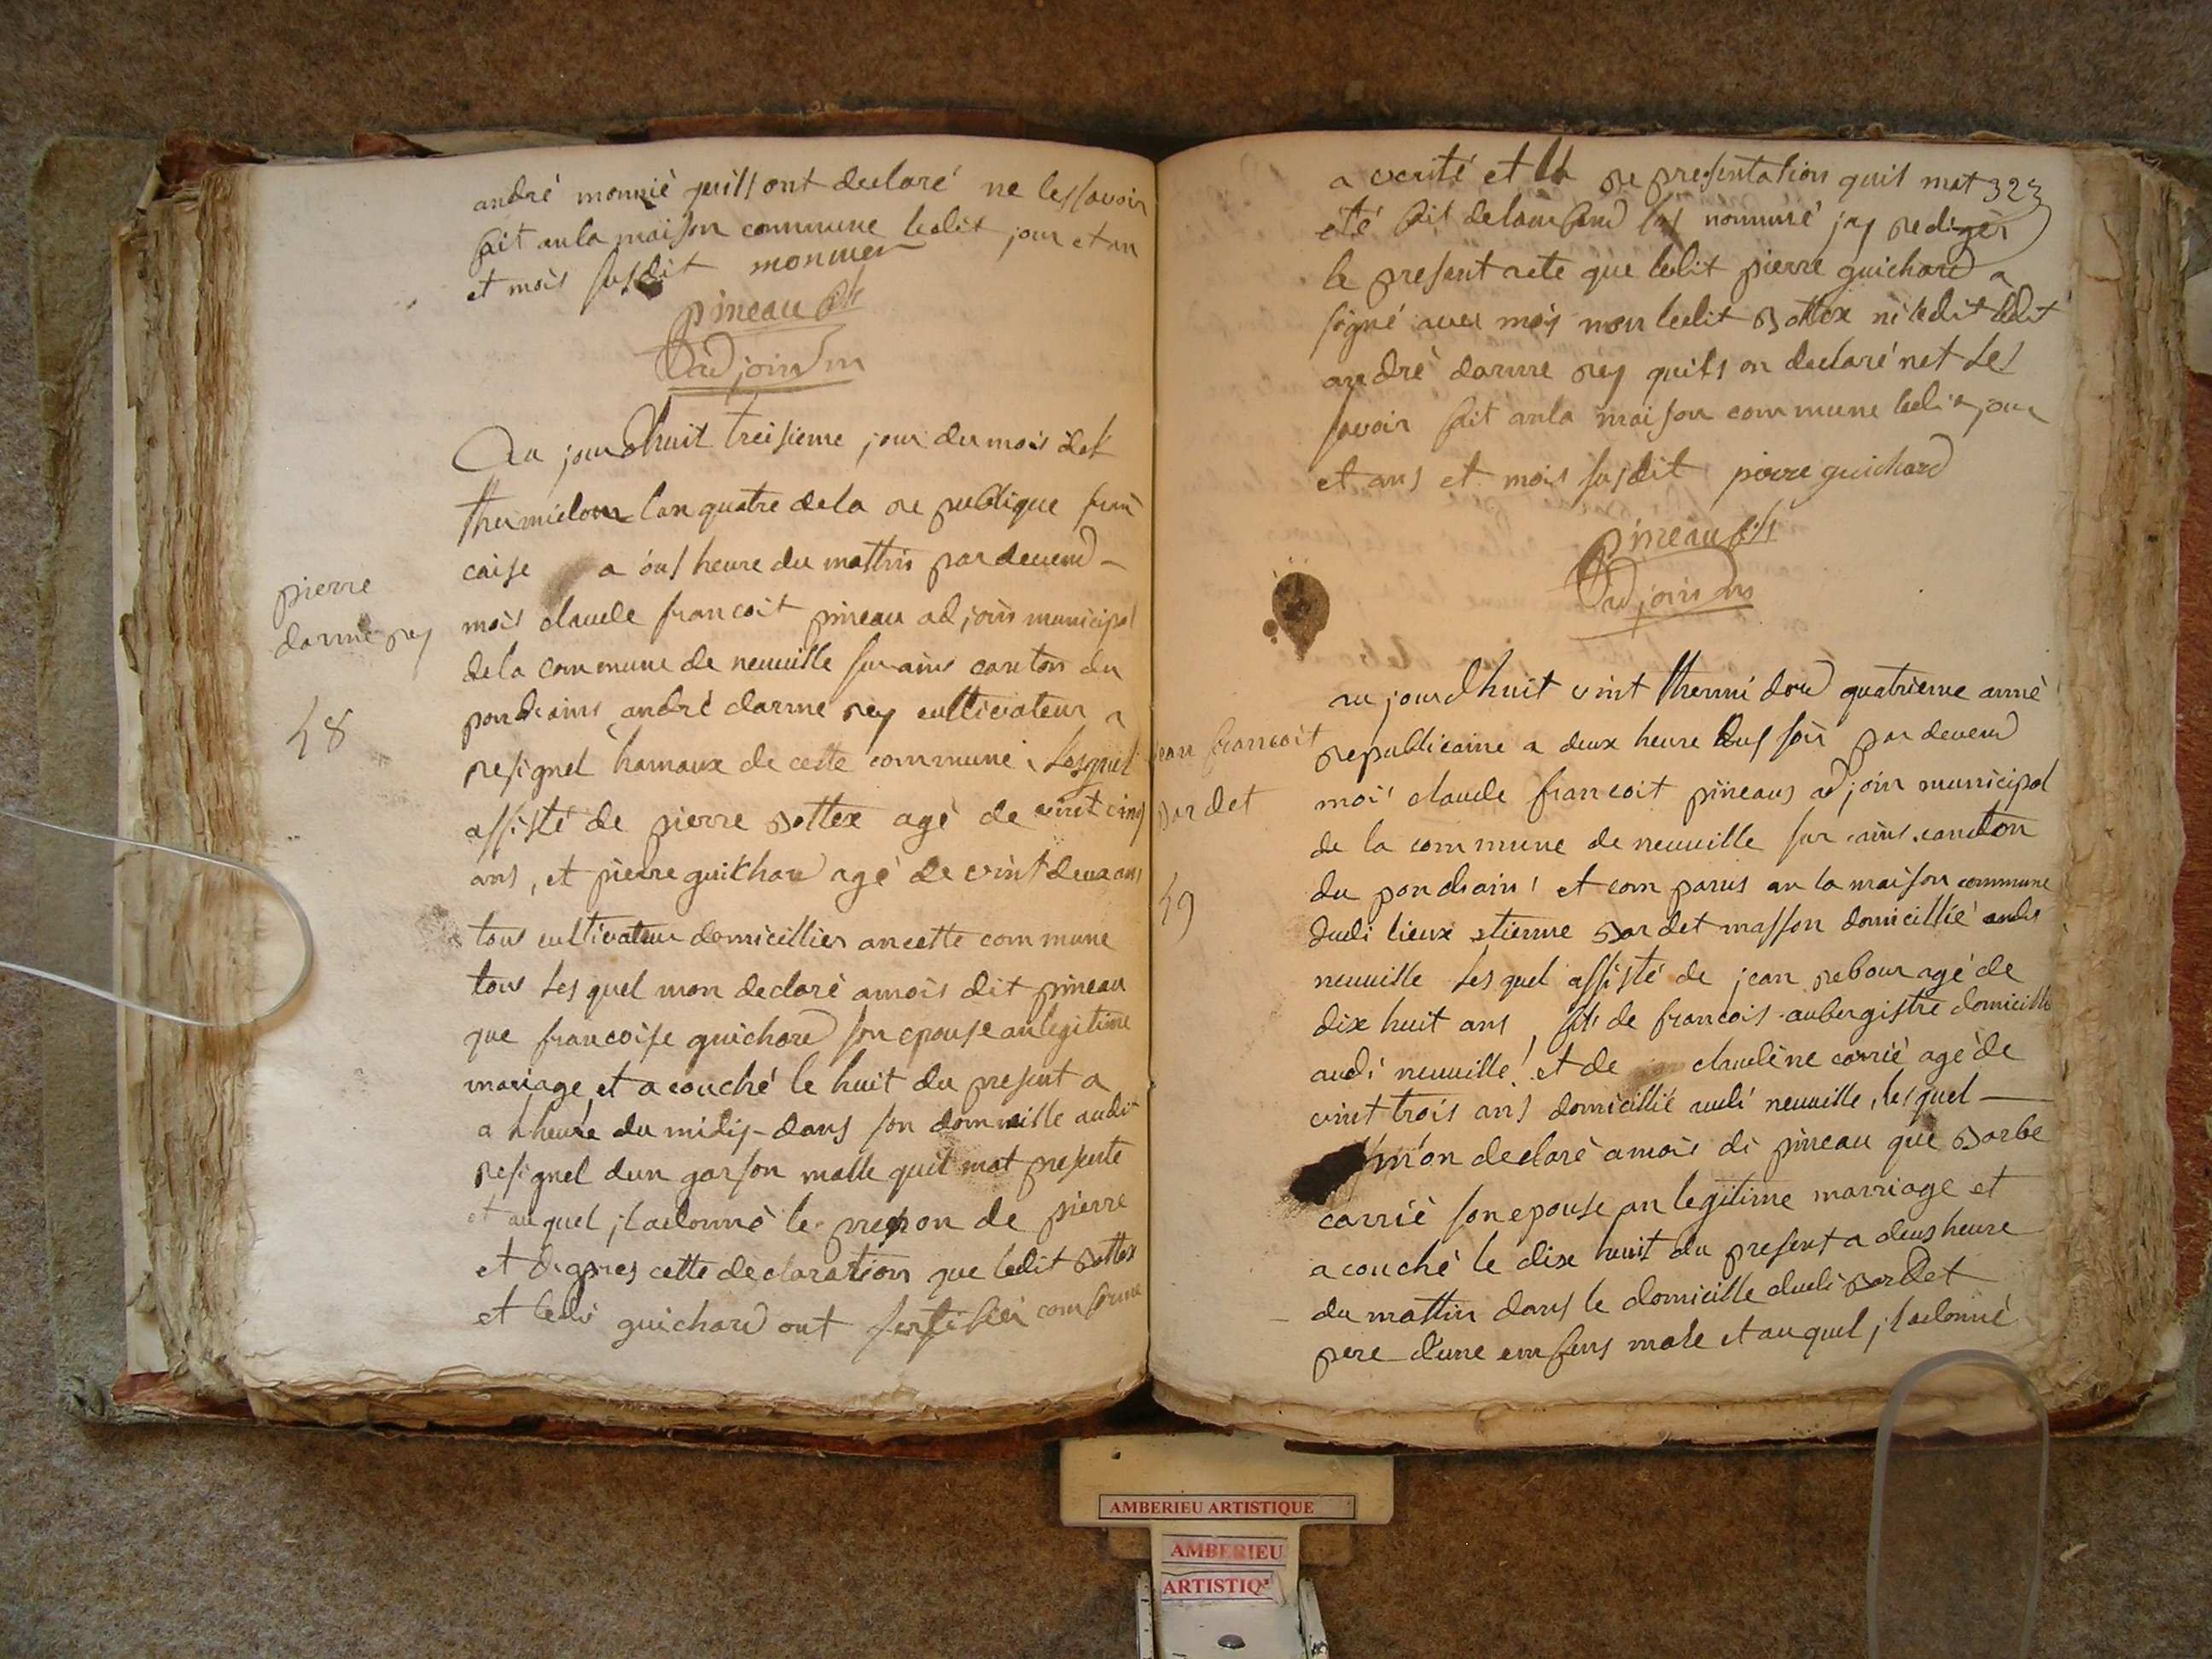 andré monnié quills ont declaré ne lessavoir
fait anla maison commune ledit jour et an
et mois susdit monnier
pineau fils
adjoint m
Au jourdhuit treisieme jour du mois det
thermidour lan quatre dela re publique fran
caise a ons heure du mattin par devend
mois claude francoit pineau adjoin municipal
dela commune de neuville sur ains canton du
pondrains andré darme rey cultivateur a
resignel hamaux de cette commune, lesquel
assisté de pierre bottex agé de vint cinq
ans, et pierre guichard agé de vint deux ans
tous cultivateur domicillier ancette commune
tous les quel mon declaré amois dit pineau
que francoise guichard son epouse anlegitime
mariage et a couché le huit du present a
a heure du midis dans son dommeille audit
resignel dun garson malle quil mat presente
et auquel il adonné le prenon de pierre
et dapres cette declaration que ledit bottex
et ledi guichard ont sertifiér comforme
pierre
darme rey
48
a verité et la re presentation quil mat 323
été fait delamfand nommé jay rediger
le present acte que ledit pierre guichard a
signé avec mois non ledit bottex ni ledit
andré darme rey quils on declaré net les
savoir fait anla maison commune ledit jour
et ans et mois susdit pierre guichard
pineau fils
adjoin m
au jourdhuit vint thermidord quatrieme anné
republicaine a deux heure dus soir par devend
moi claude francoit pineaus adjoin municipal
de la commune de neuville sur ains canton
du pondrain et com parus an la maison commune
dudi lieux etienne bardet masson domicillié audi
neuville les quel assisté de jean rebour agé de
dix huit ans, fils de francois aubergistre domicillié
audi neuville et de claudène carrié agé de
vint trois ans domicillié audi neuville, les quel
mon declaré amois di pineau que barbe
carrié son epouse an legitime marriage et
a couché le dix huit du present a deus heure
du mattin dans le domicille dudi bardet
pere dune emfens male et auquel il adonné
jean francoit
bardet
49
AMBERIEU ARTISTIQUE
AMBERIEU
ARTISTIQ